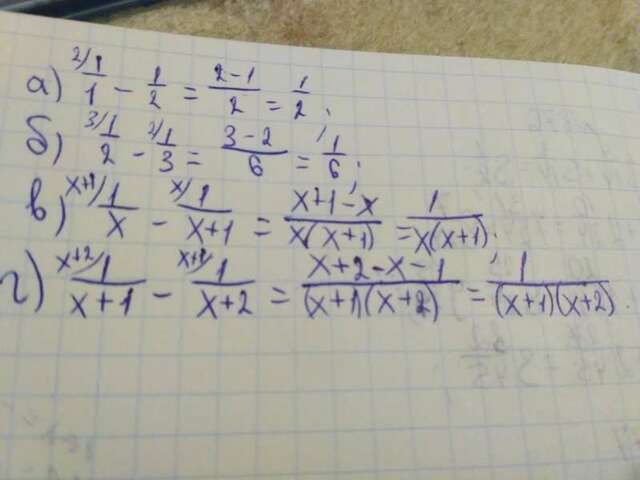 а) 2/ 1/1 - 1/2 = (2-1)/2 = 1/2.
б) 3/ 1/2 - 2/ 1/3 = (3-2)/6 = 1/6.
в) x+1/ 1/x - x/ 1/(x+1) = (x+1-x)/(x(x+1)) = 1/(x(x+1)).
г) x+2/ 1/(x+1) - x+1/ 1/(x+2) = (x+2-x-1)/((x+1)(x+2)) = 1/((x+1)(x+2)).